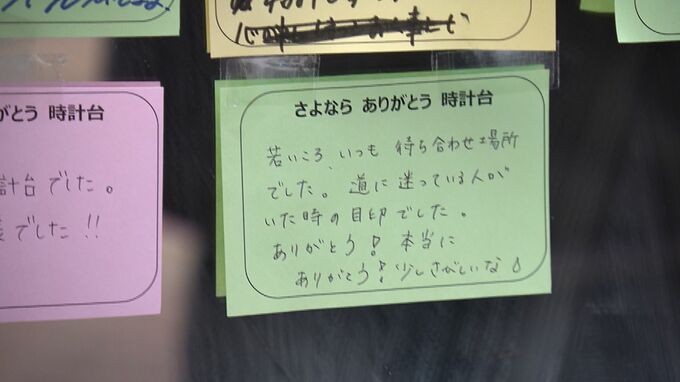 がとう 時計台
計台でした。
でした!!
さよなら ありがとう 時計台
若いころ、いつも 待ち合わせ場所
でした。道に迷っている人が
いた時の目印でした。
ありがとう! 本当に
ありがとう! 少しさびしいな